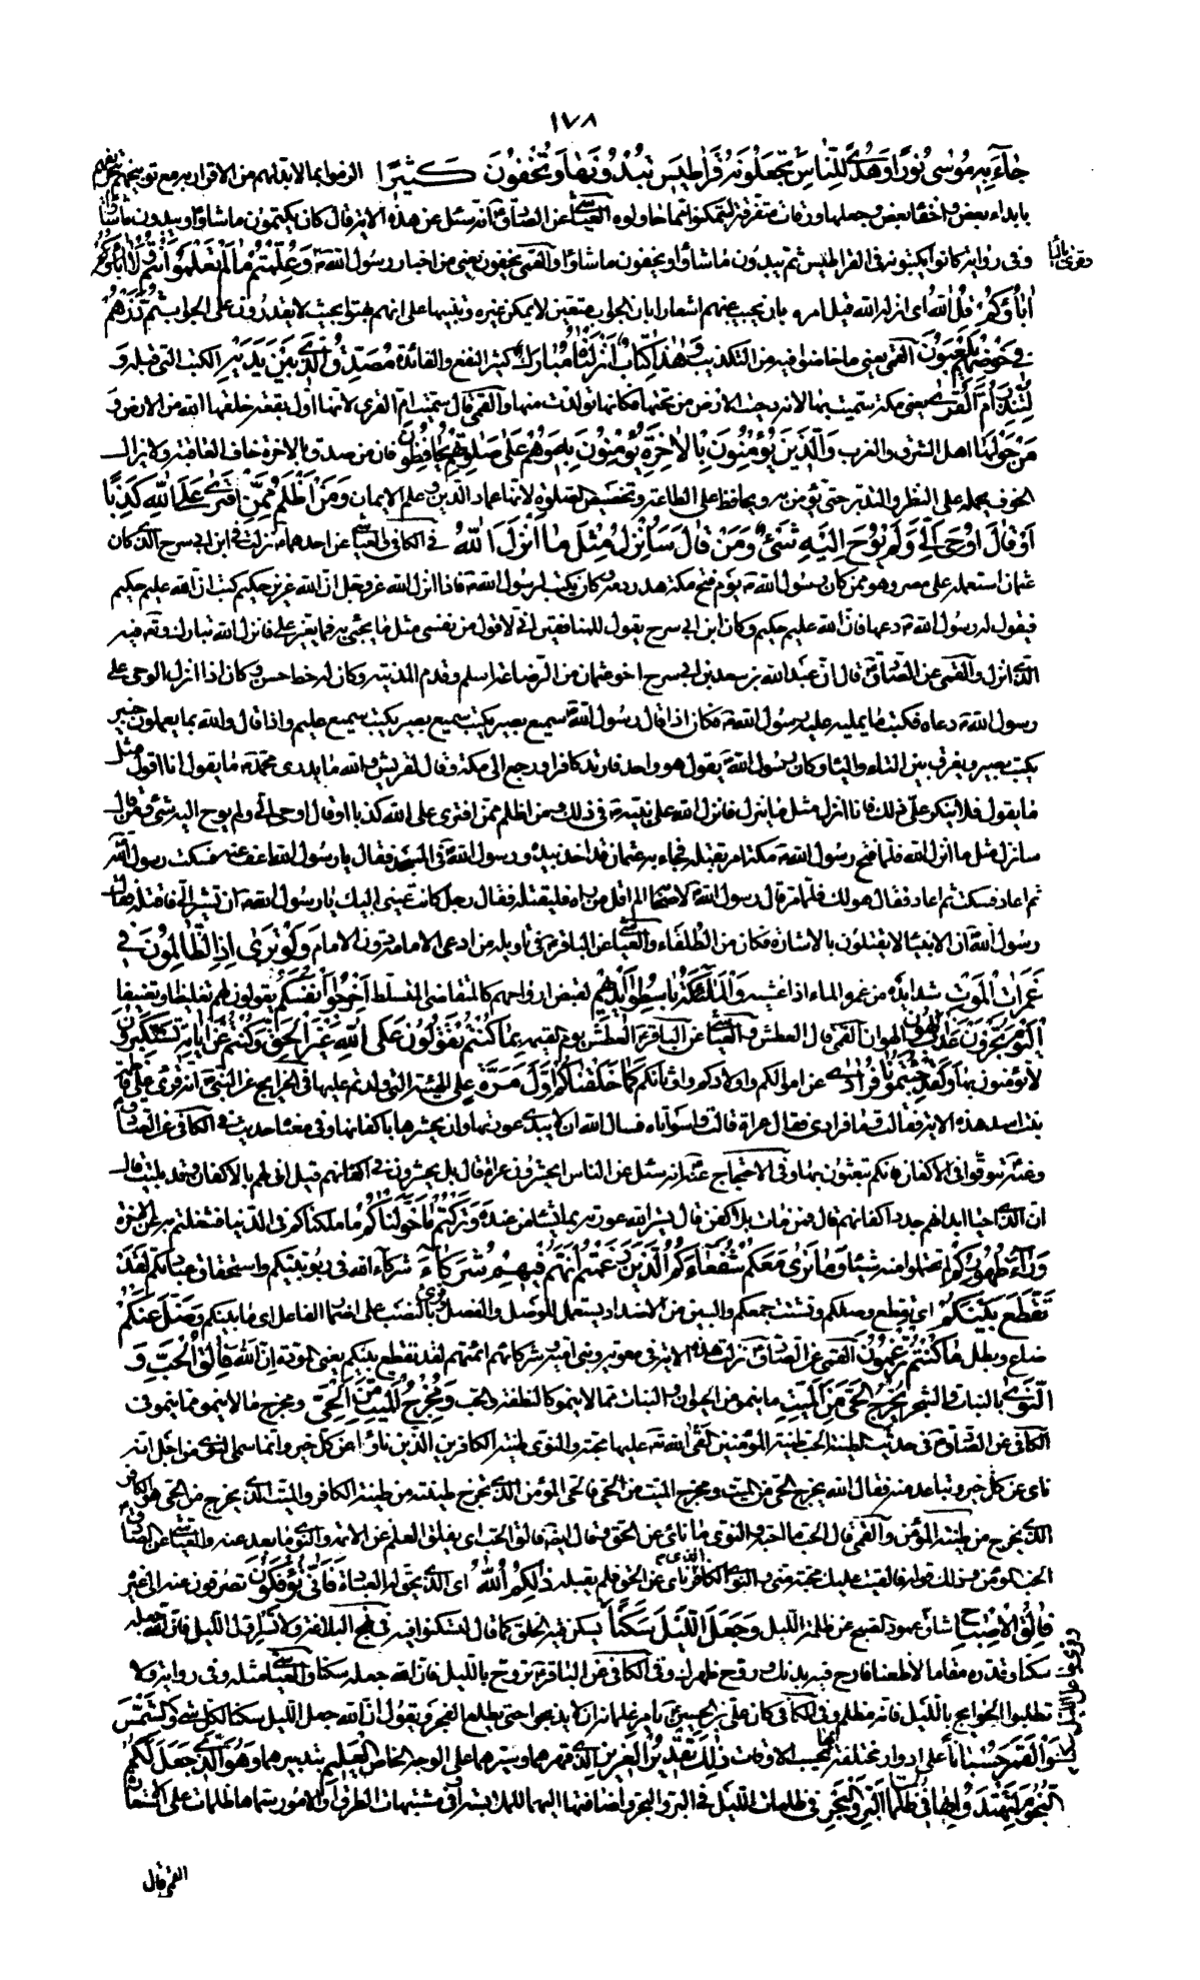 ١٧٨
جٰآءَ بِهِ مُوسٰى نُورًا وَهُدًى لِلنّاسِ تَجْعَلُونَهُ قَرٰاطِيسَ تُبْدُونَهٰا وَتُخْفُونَ كَثِيرًا الزموا بما لا بد لهم من الاقرار به مع توبيخهم بتحريفهم
بابداء بعض واخفاء بعض وجعلها ورقات متفرقة ليتمكنوا مما حاولوه العياشى عن الصادق انه سئل عن هذه الاية قال كان يكتمون ما شاؤا ويبدون ما شاؤا
وفى رواية كانوا يكتبونه فى القراطيس ثم يبدون ما شاؤا ويخفون ما شاؤا والقمى يخفون يعنى من اخبار رسول الله وَعُلِّمْتُمْ مٰا لَمْ تَعْلَمُوا أَنْتُمْ وَلٰا
اٰبٰاؤُكُمْ قُلِ اللّٰهُ اى انزله الله قيل امره بان يجيب عنهم اشعارا بان الجواب متعين لا يمكن غيره وتنبيها على انهم بهتوا بحيث لا يقدرون على الجواب ثُمَّ ذَرْهُمْ
فِى خَوْضِهِمْ يَلْعَبُونَ القمى يعنى ما خاضوا فيه من التكذيب وَهٰذٰا كِتٰابٌ أَنْزَلْنٰاهُ مُبٰارَكٌ كثير النفع والفائدة مُصَدِّقُ الَّذِى بَيْنَ يَدَيْهِ الكتب التى قبله وَ
لِتُنْذِرَ أُمَّ الْقُرىٰ يعنى مكة سميت بها لانه دحيت الارض من تحتها فكانها تولدت منها والقمى قال سميت ام القرى لانها اول بقعة خلقها الله من الارض وَ
مَنْ حَوْلَهٰا اهل الشرق والغرب وَالَّذِينَ يُؤْمِنُونَ بِالْاٰخِرَةِ يُؤْمِنُونَ بِهِ وَهُمْ عَلىٰ صَلٰوتِهِمْ يُحٰافِظُونَ فان من صدق بالاخرة خاف العاقبة ولا يزال
الخوف يحمله على النظر والتدبر حتى يؤمن به ويحافظ على الطاعة وتخصيص الصلوة لانها عماد الدين وعلم الايمان وَمَنْ أَظْلَمُ مِمَّنِ افْتَرىٰ عَلَى اللّٰهِ كَذِبًا
أَوْ قٰالَ أُوحِىَ إِلَىَّ وَلَمْ يُوحَ إِلَيْهِ شَىْءٌ وَمَنْ قٰالَ سَأُنْزِلُ مِثْلَ مٰا أَنْزَلَ اللّٰهُ فى الكافى والعياشى عن احدهما نزلت فى ابن ابى سرح الذى كان
عثمان استعمله على مصر وهو ممن كان رسول الله يوم فتح مكة هدر دمه وكان يكتب لرسول الله فاذا انزل الله عز وجل ان الله عزيز حكيم كتب ان الله عليم حكيم
فيقول له رسول الله دعها فان الله عليم حكيم وكان ابن ابى سرح يقول للمنافقين انى لاقول من نفسى مثل ما يجئ به فما يغير على فانزل الله تبارك وتعالى فيه
الذى انزل والقمى عن الصادق قال ان عبد الله بن سعد بن ابى سرح اخو عثمان من الرضاعة اسلم وقدم المدينة وكان له خط حسن وكان اذا انزل الوحى على
رسول الله دعاه فكتب ما يمليه عليه رسول الله فكان اذا قال رسول الله سميع بصير يكتب سميع عليم واذا قال والله بما يعملون خبير
يكتب بصير ويفرق بين التاء والياء وكان رسول الله يقول هو واحد فارتد كافرا ورجع الى مكة وقال لقريش والله ما يدرى محمد ما يقول انا اقول مثل
ما يقول فلا ينكر على ذلك فانا انزل مثل ما ينزل فانزل الله على نبيه فى ذلك ومن اظلم ممن افترى على الله كذبا او قال اوحى الى ولم يوح اليه شئ ومن قال
سانزل مثل ما انزل الله فلما فتح رسول الله مكة امر بقتله فجاء به عثمان قد اخذ بيده ورسول الله فى المسجد فقال يا رسول الله اعف عنه فسكت رسول الله
ثم اعاد فسكت ثم اعاد فقال هو لك فلما مر قال رسول الله لاصحابه الم اقل من راه فليقتله فقال رجل كانت عينى اليك يا رسول الله ان تشير الى فاقتله فقال
رسول الله ان الانبياء لا يقتلون بالاشارة فكان من الطلقاء والعياشى عن الباقر فى تاويله من ادعى الامامة دون الامام وَلَوْ تَرىٰ إِذِ الظّٰالِمُونَ فِى
غَمَرٰاتِ الْمَوْتِ شدائده من غمره الماء اذا غشيه وَالْمَلٰئِكَةُ بٰاسِطُوا أَيْدِيهِمْ لقبض ارواحهم كالمتقاضى المتسلط أَخْرِجُوا أَنْفُسَكُمُ يقولون لهم تغليظا وتعنيفا
الْيَوْمَ تُجْزَوْنَ عَذٰابَ الْهُونِ الهوان القمى قال العطش والعياشى عن الباقر العطش يوم القيمة بِمٰا كُنْتُمْ تَقُولُونَ عَلَى اللّٰهِ غَيْرَ الْحَقِّ وَكُنْتُمْ عَنْ اٰيٰاتِهِ تَسْتَكْبِرُونَ
لا تؤمنون بها وَلَقَدْ جِئْتُمُونٰا فُرٰادىٰ عن اموالكم واولادكم واوثانكم كَمٰا خَلَقْنٰاكُمْ أَوَّلَ مَرَّةٍ على الهيئة التى ولدتم عليها فى الخرايج عن النبى انه قرئ على فاطمة
بنت اسد هذه الاية فقالت وما فرادى فقال عراة قالت واسوأتاه فسال الله ان لا يبدى عورتها وان يحشرها باكفانها وفى معناه حديث فى الكافى عن الصادق
وعنه تنوقوا فى الاكفان فانكم تبعثون بها وفى الاحتجاج عنه انه سئل عن الناس ايحشرون عراة قال بل يحشرون فى اكفانهم قيل انى لهم بالاكفان وقد بليت قال
ان الذى احيا ابدانهم جدد اكفانهم قال فمن مات بلا كفن قال يستر الله عورته بما يشاء من عنده وَتَرَكْتُمْ مٰا خَوَّلْنٰاكُمْ ما ملكناكم فى الدنيا فشغلتم به عن الاخرة
وَرٰاءَ ظُهُورِكُمْ لم تحتملوا منه شيئا وَمٰا نَرىٰ مَعَكُمْ شُفَعٰاءَكُمُ الَّذِينَ زَعَمْتُمْ أَنَّهُمْ فِيكُمْ شُرَكٰآءُ شركاء الله فى ربوبيتكم واستحقاق عبادتكم لَقَدْ
تَقَطَّعَ بَيْنَكُمْ اى تقطع وصلكم وتشتت جمعكم والبين من الاضداد يستعمل للوصل والفصل وقرئ بالنصب على اضمار الفاعل اى ما بينكم وَضَلَّ عَنْكُمْ
ضاع وبطل مٰا كُنْتُمْ تَزْعُمُونَ القمى عن الصادق نزلت هذه الاية فى معوية وبنى امية وشركائهم ائمتهم لقد تقطع بينكم يعنى المودة إِنَّ اللّٰهَ فٰالِقُ الْحَبِّ وَ
النَّوىٰ بالنبات والشجر يُخْرِجُ الْحَىَّ مِنَ الْمَيِّتِ ما ينمو من الحيوان والنبات مما لا ينمو كالنطفة والحب وَمُخْرِجُ الْمَيِّتِ مِنَ الْحَىِّ ومخرج ما لا ينمو مما ينمو فى
الكافى عن الصادق فى حديث الطينة الحب طينة المؤمنين القى الله عليها محبته والنوى طينة الكافرين الذين ناوا عن كل خير وانما سمى النوى من اجل انه
ناى عن كل خير وتباعد منه فقال الله يخرج الحى من الميت ومخرج الميت من الحى فالحى المؤمن الذى تخرج طينته من طينة الكافر والميت الذى يخرج من الحى هو الكافر
الذى يخرج من طينة المؤمن والقمى قال الحب ما احبه والنوى ما ناى عن الحق وقال ايضا فالق الحب اى يفلق العلم عن الائمة والنوى ما بعد عنه والعياشى عن الصادق
الحب المؤمن وذلك قوله والقيت عليك محبة منى والنوى الكافر الذى ناى عن الحق فلم يقبله ذٰلِكُمُ اللّٰهُ اى الذى يحق له العبادة فَأَنّىٰ تُؤْفَكُونَ تصرفون عنه الى غيره
فٰالِقُ الْإِصْبٰاحِ شاق عمود الصبح عن ظلمة الليل وَجَعَلَ اللَّيْلَ سَكَنًا يسكن فيه الخلق كما قال لتسكنوا فيه فى نهج البلاغة ولا تسر اول الليل فان الله جعله
سكنا وقدره مقاما لا ظعنا فارح فيه بدنك وروح ظهرك وفى الكافى عن الباقر تزوج بالليل فان الله جعله سكنا والعياشى مثله وفى رواية ولا
تطلبوا الحوائج بالليل فانه مظلم وفى الكافى كان على بن الحسين يامر غلمانه ان لا يذبحوا حتى يطلع الفجر ويقول ان الله جعل الليل سكنا لكل شئ وَالشَّمْسَ
وَالْقَمَرَ حُسْبٰانًا على ادوار مختلفة يحسب بها الاوقات ذٰلِكَ تَقْدِيرُ الْعَزِيزِ الذى قهرهما وسيرهما على الوجه الخاص الْعَلِيمِ بتدبيرهما وَهُوَ الَّذِى جَعَلَ لَكُمُ
النُّجُومَ لِتَهْتَدُوا بِهٰا فِى ظُلُمٰاتِ الْبَرِّ وَالْبَحْرِ فى ظلمات الليل فى البر والبحر واضافتها اليهما للملابسة او فى مشتبهات الطرق والامور سماها ظلمات على الاستعارة
القمى قال